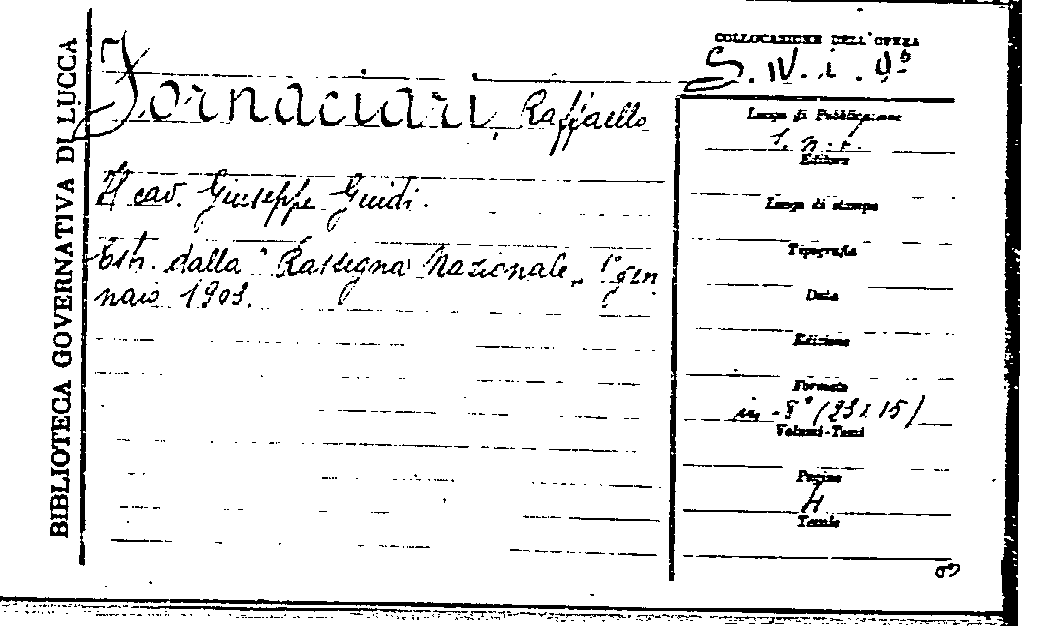 BIBLIOTECA GOVERNATIVA DI LUCCA
Fornaciari, Raffaello
Il cav. Giuseppe Guidi.
Estr. dalla "Rassegna Nazionale", 1° gen
naio 1903.
COLLOCAZIONE DELL'OPERA
S. IV. i.
Luogo di Pubblicazione
S. n. t.
Editore
Luogo di stampa
Tipografia
Data
Edizione
Formato
in-8° (23x15)
Volumi-Tomi
Pagine
4
Tavole